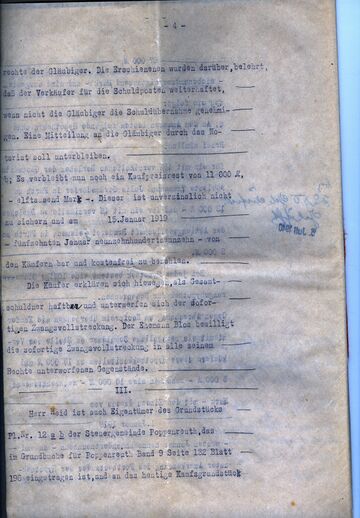 - 4 -
rechte der Gläubiger. Die Erschienenen wurden darüber, belehrt,
daß der Verkäufer für die Schuldposten weiterhaftet,
wenn nicht die Gläubiger die Schuldübernahme genehmi-
gen. Eine Mitteilung an die Gläubiger durch das No-
tariat soll unterbleiben.
Es verbleibt nun noch ein Kaufpreisrest von 11 000 M,
- elftausend Mark -. Dieser ist unverzinslich nicht
zu sichern und am 15. Januar 1919
- fünfzehnten Januar neunzehnhundertneunzehn - von
den Käufern bar und kostenfrei zu bezahlen.
Die Käufer erklären sich hiewegen, als Gesamt-
schuldner haftbar und unterwerfen sich der sofor-
tigen Zwangsvollstreckung. Der Ehemann Blos bewilligt
die sofortige Zwangsvollstreckung in alle seinem
Rechte unterworfenen Gegenstände.
III.
Herr Heid ist auch Eigentümer des Grundstücks
Pl.Nr. 12 a b der Steuergemeinde Poppenreuth, das
im Grundbuche für Poppenreuth Band 9 Seite 132 Blatt
196 eingetragen ist, und an das heutige Kaufsgrundstück